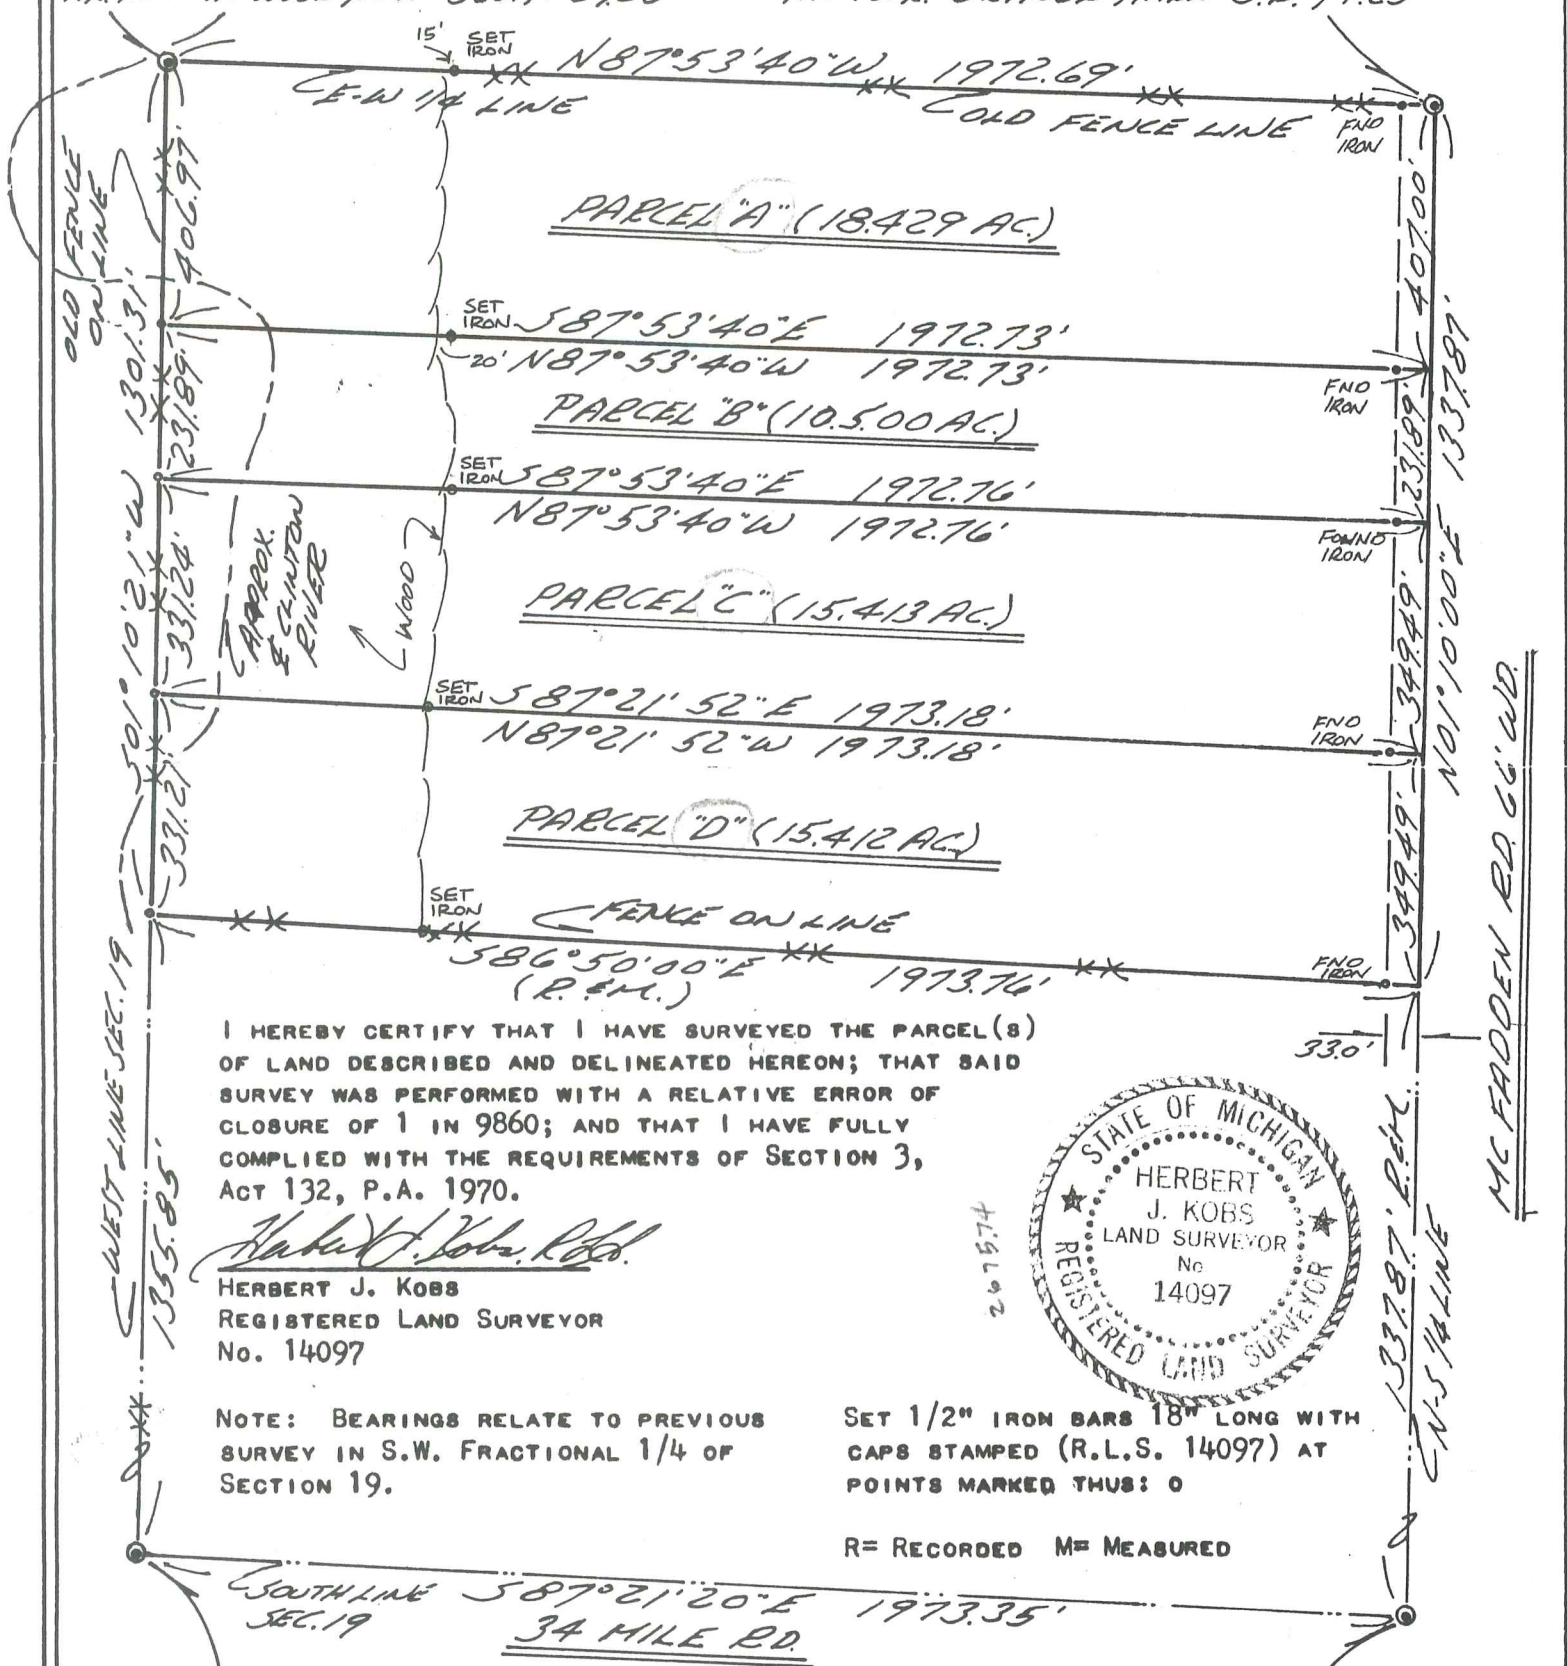 15' SET IRON N87°53'40"W 1972.69'
E-W 1/4 LINE
OLD FENCE LINE
FND IRON
OLD FENCE ON LINE
406.97'
407.00'
PARCEL "A" (18.429 AC.)
SET IRON S87°53'40"E 1972.73'
20' N87°53'40"W 1972.73'
FND IRON
S01°10'21"W 1301.31'
N01°10'00"E 1337.87'
231.89'
231.89'
PARCEL "B" (10.500 AC.)
SET IRON S87°53'40"E 1972.76'
N87°53'40"W 1972.76'
FOUND IRON
APPROX. ℄ CLINTON RIVER
WOOD
331.24'
349.49'
PARCEL "C" (15.413 AC.)
SET IRON S87°21'52"E 1973.18'
N87°21'52"W 1973.18'
FND IRON
MC FADDEN RD. 66' WD.
331.21'
349.49'
PARCEL "D" (15.412 AC.)
SET IRON
FENCE ON LINE
S86°50'00"E 1973.76'
(R. & M.)
FND IRON
33.0'
I HEREBY CERTIFY THAT I HAVE SURVEYED THE PARCEL(S)
OF LAND DESCRIBED AND DELINEATED HEREON; THAT SAID
SURVEY WAS PERFORMED WITH A RELATIVE ERROR OF
CLOSURE OF 1 IN 9860; AND THAT I HAVE FULLY
COMPLIED WITH THE REQUIREMENTS OF SECTION 3,
ACT 132, P.A. 1970.
Herbert J. Kobs, R.L.S.
HERBERT J. KOBS
REGISTERED LAND SURVEYOR
No. 14097
STATE OF MICHIGAN
HERBERT
J. KOBS
LAND SURVEYOR
No
14097
REGISTERED LAND SURVEYOR
WEST LINE SEC. 19
1355.85'
1337.87' R.&M.
N-S 1/4 LINE
NOTE: BEARINGS RELATE TO PREVIOUS
SURVEY IN S.W. FRACTIONAL 1/4 OF
SECTION 19.
SET 1/2" IRON BARS 18" LONG WITH
CAPS STAMPED (R.L.S. 14097) AT
POINTS MARKED THUS: O
R= RECORDED M= MEASURED
SOUTH LINE SEC. 19
S87°21'20"E 1973.35'
34 MILE RD.